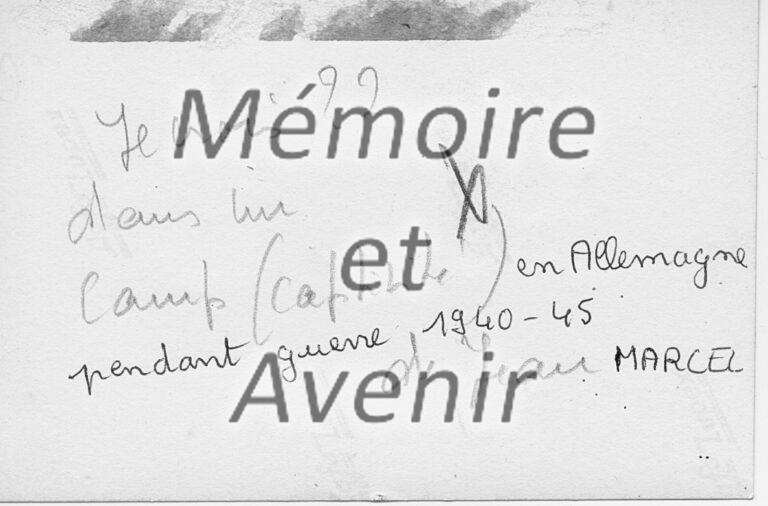 ??
Je suis
dans un
Camp (captivité) en Allemagne
pendant guerre 1940-45
de Jean MARCEL
Mémoire
et
Avenir